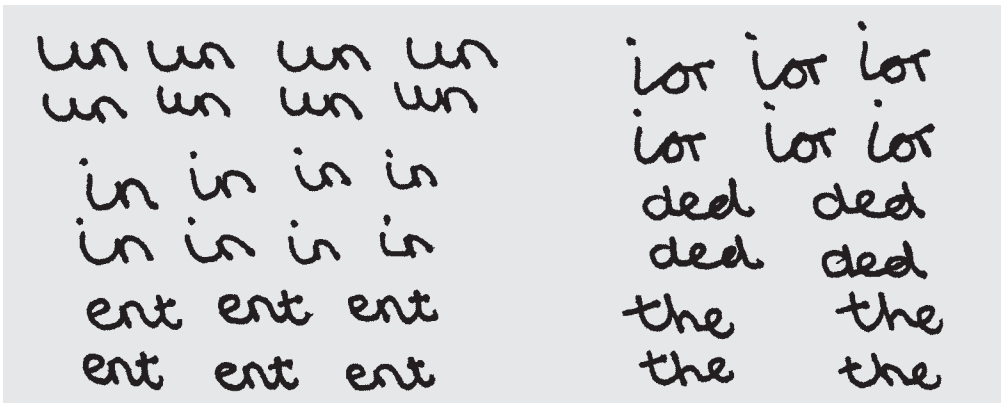 un un un un
un un un un
in in in in
in in in in
ent ent ent
ent ent ent
ior ior ior
ior ior ior
ded ded
ded ded
the the
the the